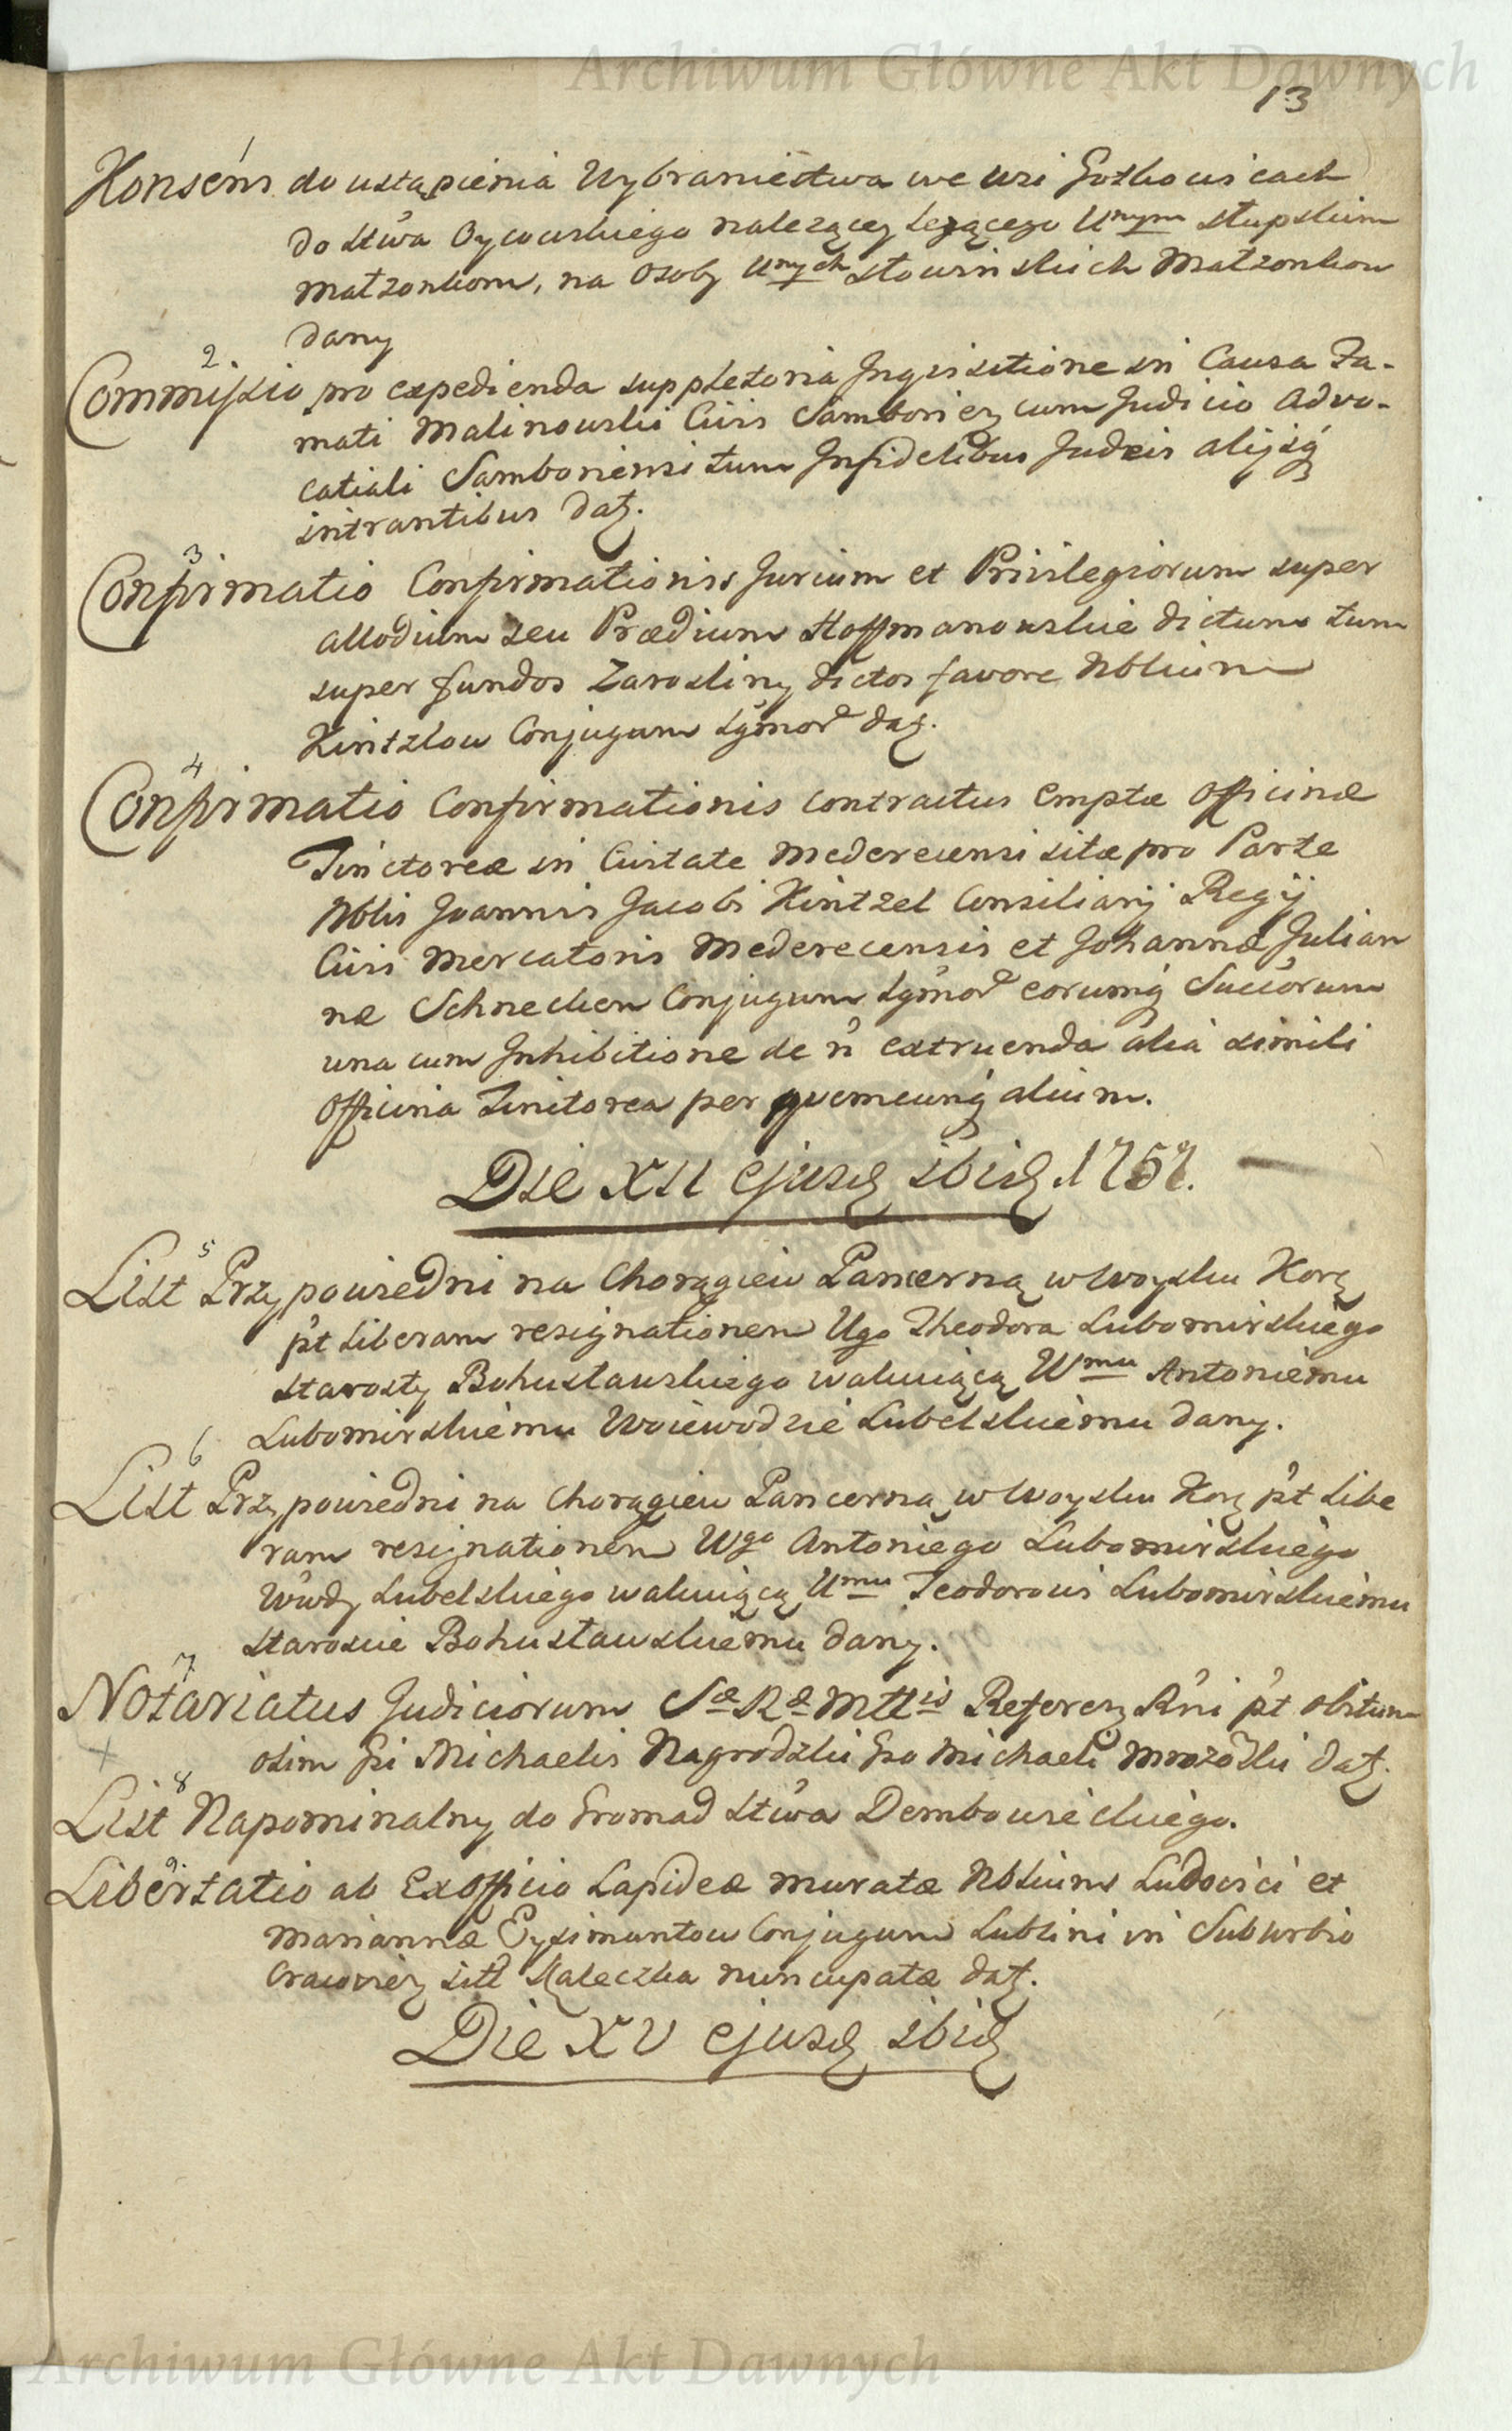 Archiwum Główne Akt Dawnych
13
1
Konsens do ustąpienia Wybraniectwa we wsi
do Stwa Oycowskiego nalezącey lezącego Unym Słupskim
Małzonkom, na Osoby Unych Słowinskich Małzonkow
dany
2.
Commissio pro expedienda suppletoria Inqvisitione in Causa Fa-
mati Malinowski Civis Samborien cum Judicio Advo-
catiali Samboriensi tum Infidelibus Judæis alijsq
intrantibus dat.
3
Confirmatio Confirmationis Jurium et Privilegiorum super
allodium seu Prædium Hoffmanowskie dictum tum
super fundos Zarosliny dictos favore Nblium
Kintzlow Conjugum dat.
4
Confirmatio Confirmationis Contractus Emptæ Officinæ
Tinctoreæ in Civitate Mederecensi sitæ pro Parte
Nblis Joannis Jacobi Kintzel Consiliarij Regij
Civis Mercatoris Mederecensis et Johannæ Julian
næ Schnecken Conjugum eorumq Succorum
una cum Inhibitione de n extruenda alia simili
Officina Tinctorea per qvemcunq alium.
Die XII ejusd ibid. 1757.
5
List Przypowiedni na Chorągiew Pancerną w Woysku Kor
pt liberam resignationem Ugo Theodora Lubomirskiego
Starosty Bohusławskiego wakuiącą Wmu Antoniemu
Lubomirskiemu Woiewodzie Lubelskiemu dany.
6
List Przypowiedni na Chorągiew Pancerną w Woysku Kor pt libe
ram resignationem Wgo Antoniego Lubomirskiego
Wwdy Lubelskiego wakuiącą Umu Teodorowi Lubomirskiemu
Staroscie Bohusławskiemu dany.
7
Notariatus Judiciorum Sæ Ræ Mttis Referen Rni pt obitum
+
olim Gi Michaelis Nagrodzki Go Michaeli Mrozoski dat.
8
List Napominalny do Gromad Stwa Dembowieckiego.
9
Libertatio ab Exofficio Lapideæ muratæ Nblium Ludovici et
Mariannæ Eysimontow Conjugum Lublini in Suburbio
Cracovien sitt nuncupatæ dat.
Die XV ejusd ibid
Archiwum Główne Akt Dawnych